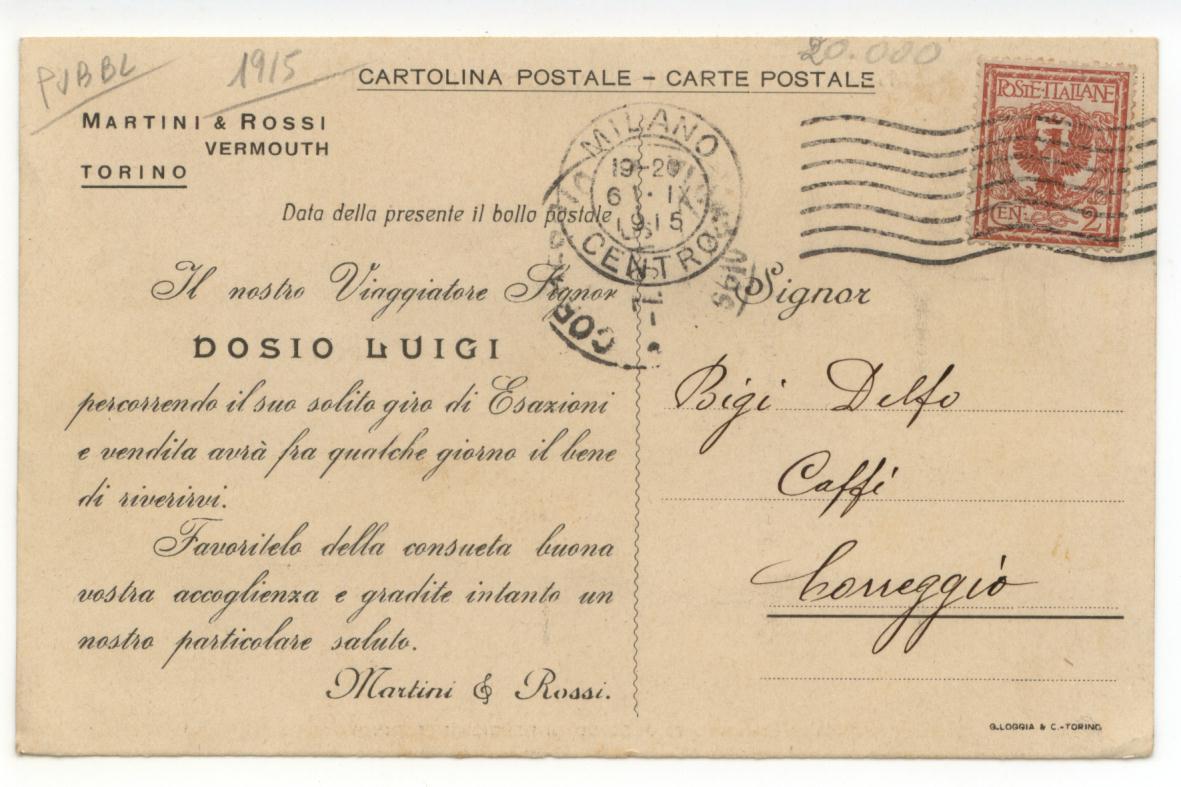 PUBBL
1915
20.000
CARTOLINA POSTALE - CARTE POSTALE
MARTINI & ROSSI
VERMOUTH
TORINO
Data della presente il bollo postale
Il nostro Viaggiatore Signor
DOSIO LUIGI
percorrendo il suo solito giro di Esazioni
e vendita avrà fra qualche giorno il bene
di riverirvi.
Favoritelo della consueta buona
vostra accoglienza e gradite intanto un
nostro particolare saluto.
Martini & Rossi.
MILANO
19-20
6 IX
1915
CENTRO
POSTE·ITALIANE
CEN. 2
Signor
Bigi Delfo
Caffè
Correggio
G. LOGGIA & C.-TORINO